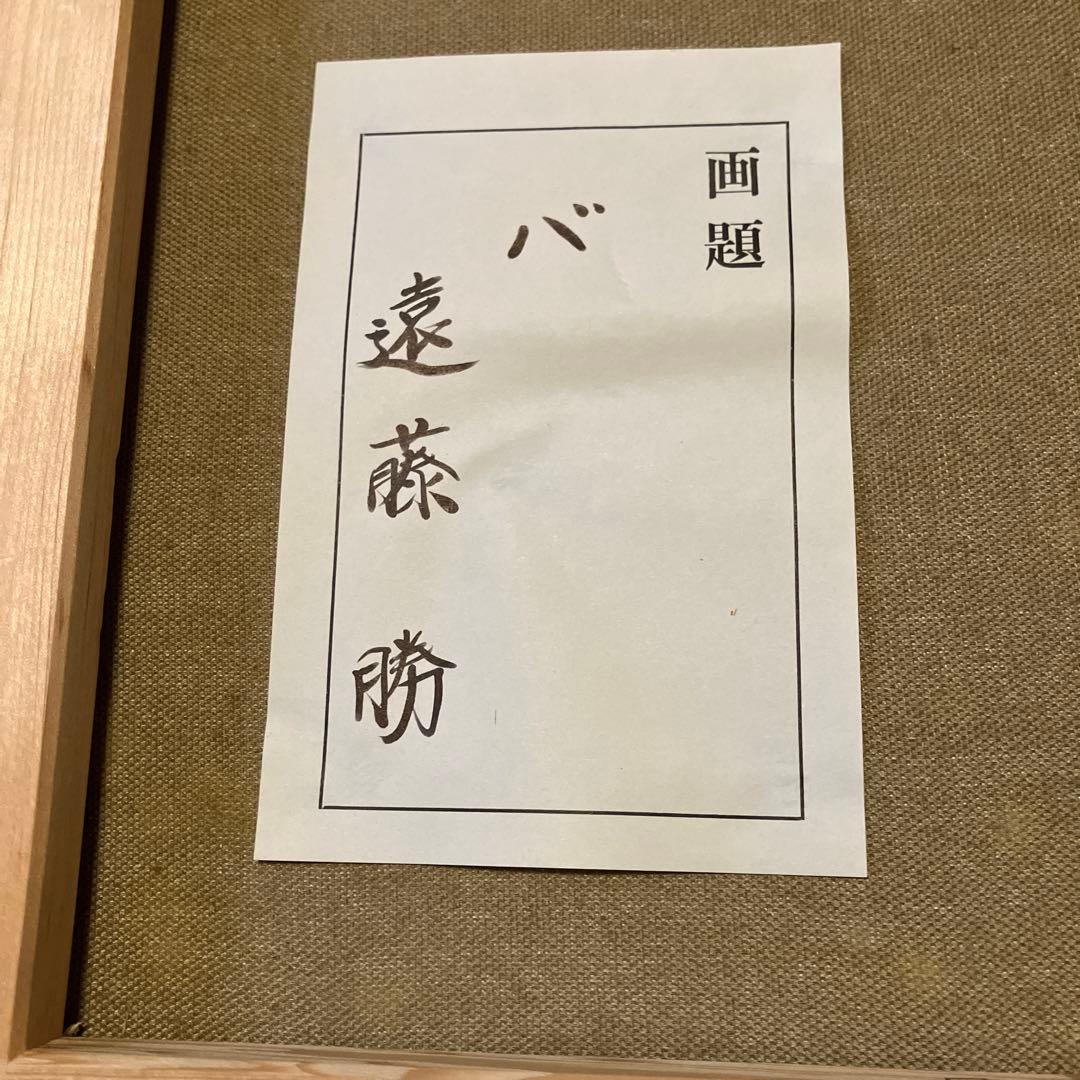 画題
バ
遠藤勝